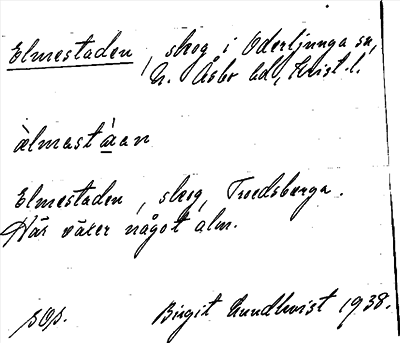 Elmestaden, skog i Oderljunga sn,
N. Åsbo hd, Krist. l.
àlmastá̱an
Elmestaden, skog, Tredsberga.
Här växer något alm.
sOp. Birgit Lundkvist 1938.